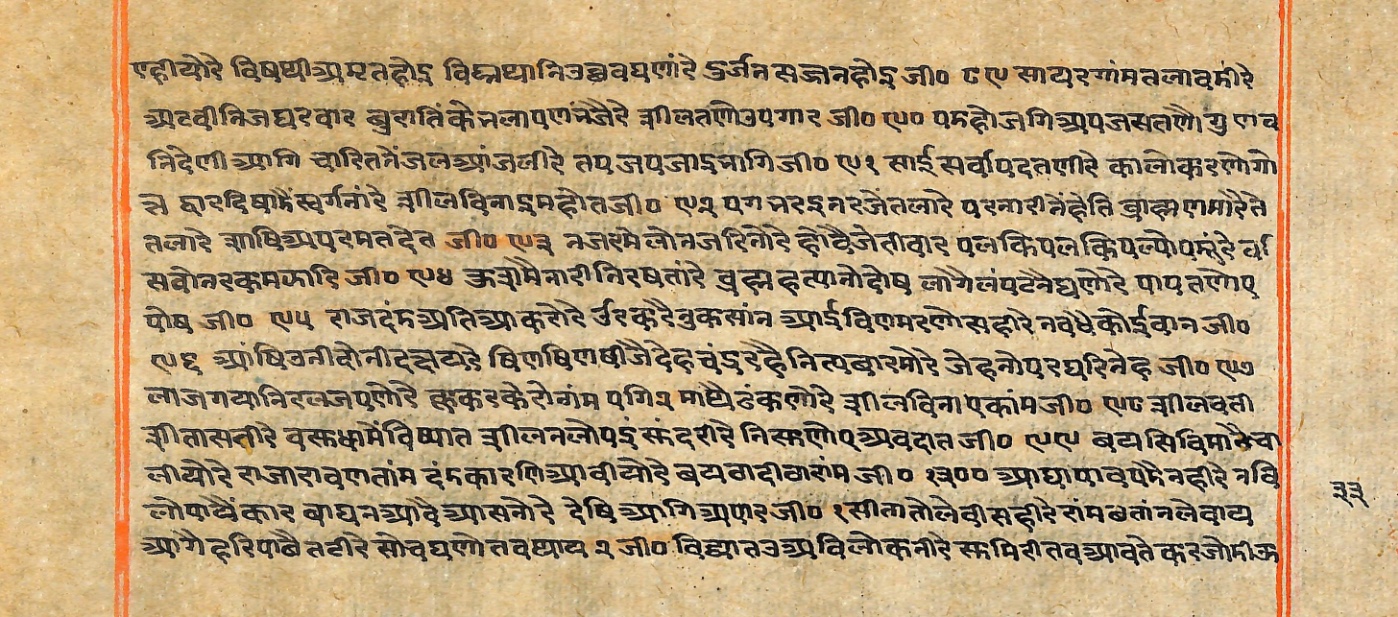 एहीयोरे विषथीअमृतहोइ विघ्नथानिउच्छवघणांरे दुर्जनसज्जनहोइ जी० ८९ सायरगांमतलावमीरे
अटवीनिजघरबार बुरातिंके भलापणभजैरे शीलतणोउपगार जी० ९० पडहोजगिअपजसतणौ गुणव
निदेणीआगि चारितनेंजलआंजलीरे तपजपजाइभागि जी० ९१ साईसर्वापदतणीरे कालोकरणोगो
त्र द्वारदिषाडैंस्वर्गनांरे शीलविनाइमहोत जी० ९२ पगभरइनरजेंतलारे परनारीनेंहेति ब्राह्मणमारैते
तलारे शाषिअपरमतदेत जी० ९३ नजरमेलोनजरिनोरे होवैजेतीवार पलकिपलकिपल्योपमुंरे र्वा
सवोनरकमझारि जी० ९४ ऊत्रामैनारीनिरषतांरे ब्रह्महत्यानोदोष लागैलंपटनैघणोरे पापतणोए
पोष जी० ९५ राजदंडअतिआकरोरे र्दुरकरैवुकसांन आईविणमरणोसहीरे नवधैकोईवान जी०
९६ आंषिउनीदोनीदत्रटारे षिणषिणषीजैदेह चंदुरहैनित्यबारमोरे जेहनोपरघरिनेह जी० ९७
लाजगयानिरलजपणोरे लुकरकेरोनांम पगि२ माथैढंकणोरे शीलविनाएकांम जी० ९८ शीलवती
सीतासतीरे वसुधामेंविष्यात शीलनलोपइंसुंदरीरे निसुणोएअवदात जी० ९९ बयसिविमांकैचा
लीयोरे राजारावणतांम दंडकारणिआवीयोरे बयठादीठारांम जी० १३०० आघापावपडेनहीरे नवि
लोपायैंकार वाघनआवैआसनोरे देषिआगिअपार जी० १ सीतातोलेवीसहीरे रांमछतांनलेवाय
आगैहरिपाछैतटीरे सोचघणोतवथाय २ जी० विद्यातउअविलोकनीरे सुमिरीतवआवते करजोडीऊ
३३